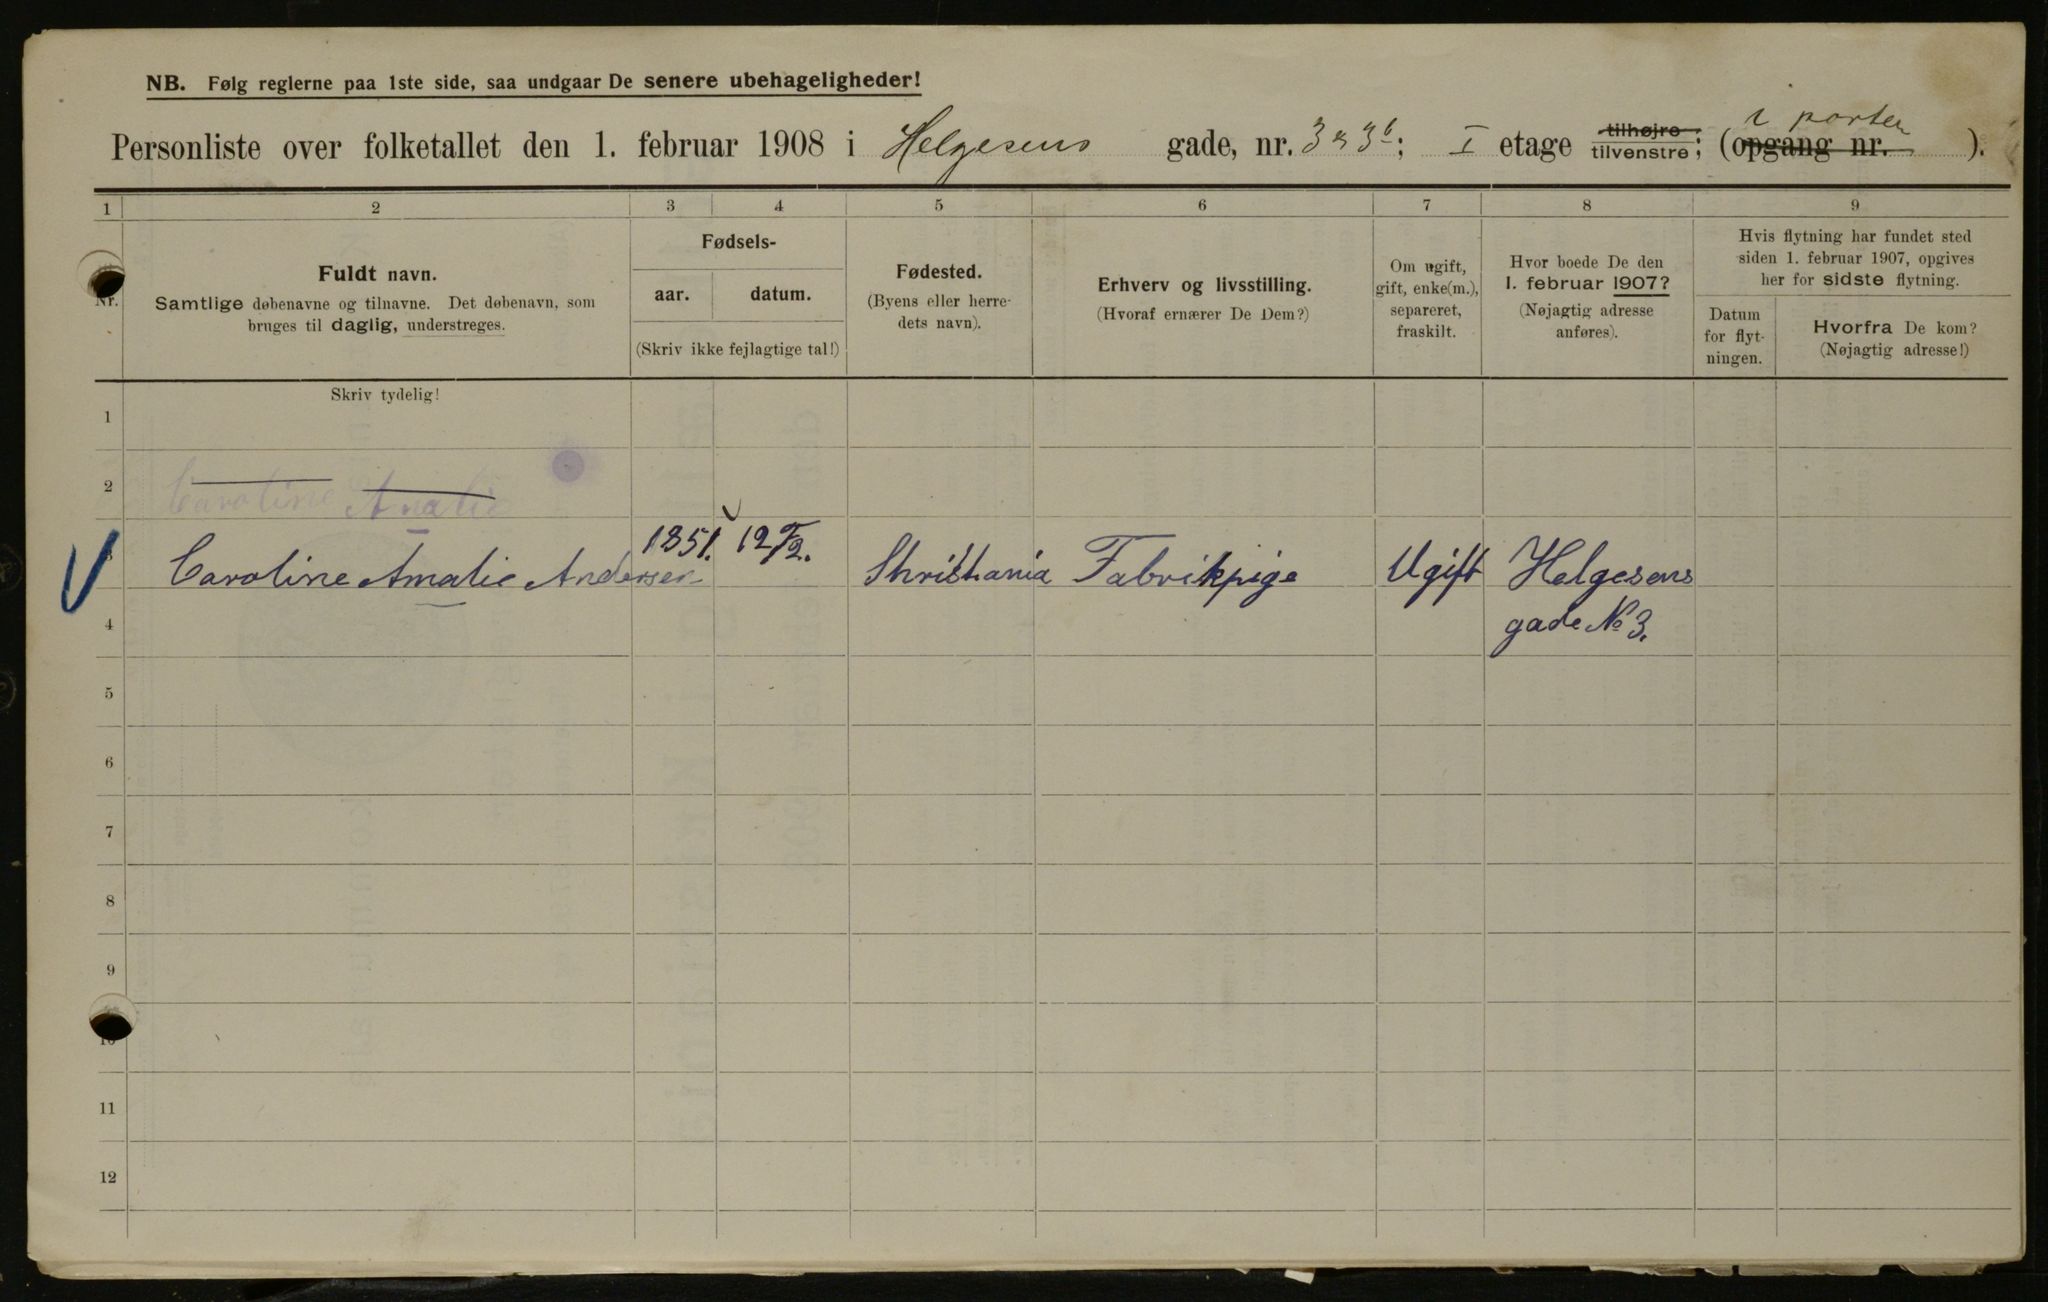 NB. Følg reglerne paa 1ste side, saa undgaar De senere ubehageligheder!
Personliste over folketallet den 1. februar 1908 i Helgesens gade, nr. 3 & 3b; I etage tilhøjre tilvenstre; (opgang nr. i porten ).
1 2 3 4 5 6 7 8 9
Nr.
Fuldt navn.
Samtlige døbenavne og tilnavne. Det døbenavn, som
bruges til daglig, understreges.
Fødsels-
aar. datum.
(Skriv ikke fejlagtige tal!)
Fødested.
(Byens eller herre-
dets navn).
Erhverv og livsstilling.
(Hvoraf ernærer De Dem?)
Om ugift,
gift, enke(m.),
separeret,
fraskilt.
Hvor boede De den
1. februar 1907?
(Nøjagtig adresse
anføres).
Hvis flytning har fundet sted
siden 1. februar 1907, opgives
her for sidste flytning.
Datum
for flyt-
ningen.
Hvorfra De kom?
(Nøjagtig adresse!)
Skriv tydelig!
1
2 Caroline Amalie
3 Caroline Amalie Andersen 1851. 12/2. Shristiania Fabrikpige Ugift Helgesens
4 gade No 3.
5
6
7
8
9
10
11
12